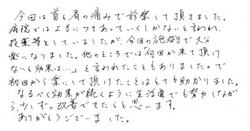 今回は首と肩の痛みで診察して頂きました。
病院では上手につきあっていくしかないと言われ、
投薬等としていましたが、今回の施術で大分
楽になりました。他のところでは「何回か来て頂け
ないと効果は…」と言われたこともありました。で
初回から楽にして頂けたことはとても助かりました。
なるべく効果が続くように生活面でも努力しなが
ら、少しずつ改善できたらと思います。
ありがとうございました。